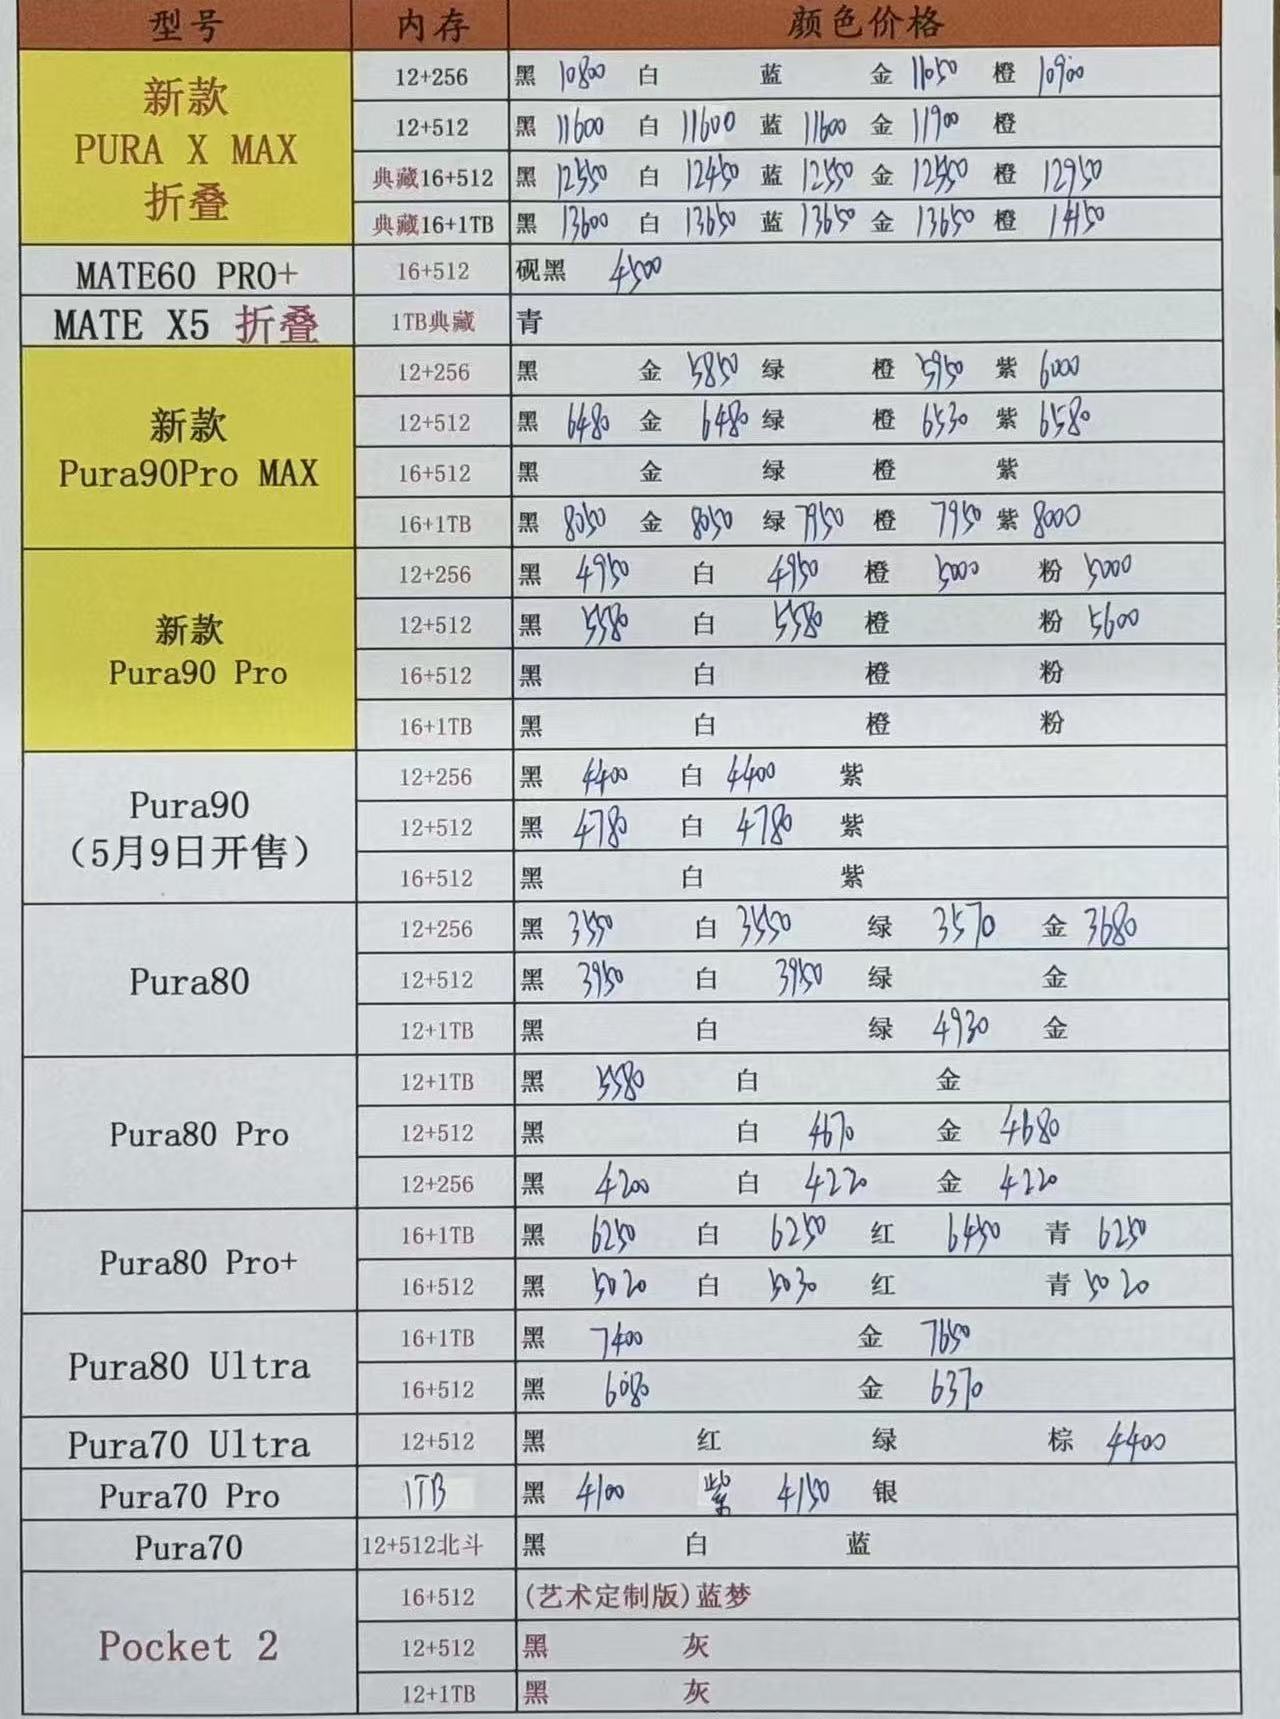 型号 内存 颜色价格
新款 PURA X MAX 折叠
12+256 黑 10800 白 蓝 金 11050 橙 10900
12+512 黑 11600 白 11600 蓝 11600 金 11900 橙
典藏16+512 黑 12550 白 12450 蓝 12550 金 12550 橙 12950
典藏16+1TB 黑 13600 白 13650 蓝 13650 金 13650 橙 14150
MATE60 PRO+ 16+512 砚黑 4500
MATE X5 折叠 1TB典藏 青
新款 Pura90Pro MAX
12+256 黑 金 5850 绿 橙 5950 紫 6000
12+512 黑 6480 金 6480 绿 橙 6530 紫 6580
16+512 黑 金 绿 橙 紫
16+1TB 黑 8050 金 8050 绿 7950 橙 7950 紫 8000
新款 Pura90 Pro
12+256 黑 4950 白 4950 橙 5000 粉 5000
12+512 黑 5580 白 5580 橙 粉 5600
16+512 黑 白 橙 粉
16+1TB 黑 白 橙 粉
Pura90 (5月9日开售)
12+256 黑 4400 白 4400 紫
12+512 黑 4780 白 4780 紫
16+512 黑 白 紫
Pura80
12+256 黑 3550 白 3550 绿 3570 金 3680
12+512 黑 3950 白 3950 绿 金
12+1TB 黑 白 绿 4930 金
Pura80 Pro
12+1TB 黑 5580 白 金
12+512 黑 白 4670 金 4680
12+256 黑 4200 白 4220 金 4220
Pura80 Pro+
16+1TB 黑 6250 白 6250 红 6450 青 6250
16+512 黑 5020 白 5030 红 青 5020
Pura80 Ultra
16+1TB 黑 7400 金 7650
16+512 黑 6080 金 6370
Pura70 Ultra 12+512 黑 红 绿 棕 4400
Pura70 Pro 1TB 黑 4100 紫 4150 银
Pura70 12+512北斗 黑 白 蓝
Pocket 2
16+512 (艺术定制版)蓝梦
12+512 黑 灰
12+1TB 黑 灰